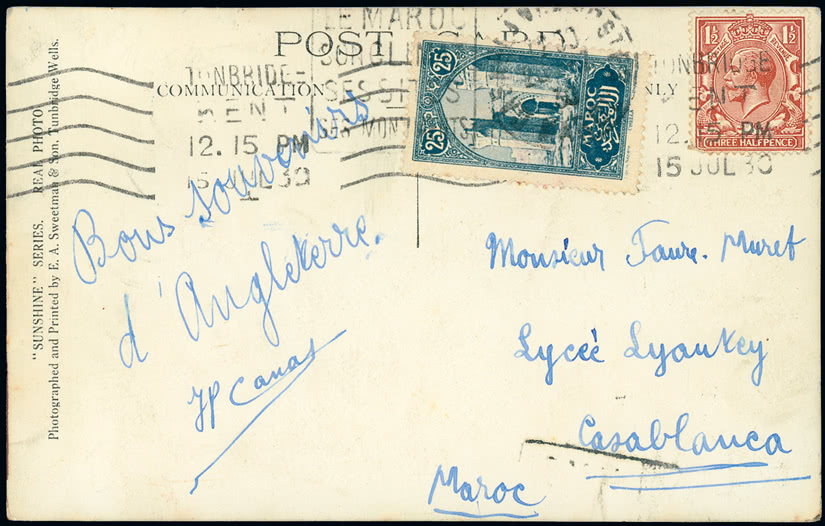 POST CARD
COMMUNICATION
NLY
TONBRIDGE
KENT
12.15 PM
15 JUL 30
LE MAROC
25c
25c
MAROC
TONBRIDGE
KENT
12.15 PM
15 JUL 30
1½
1½
POSTAGE
REVENUE
THREE HALFPENCE
"SUNSHINE" SERIES. REAL PHOTO.
Photographed and Printed by E. A. Sweetman & Son, Tunbridge Wells.
Bons souvenirs
d'Angleterre.
JP Canas
Monsieur Faure. Muret
Lycée Lyautey
Casablanca
Maroc